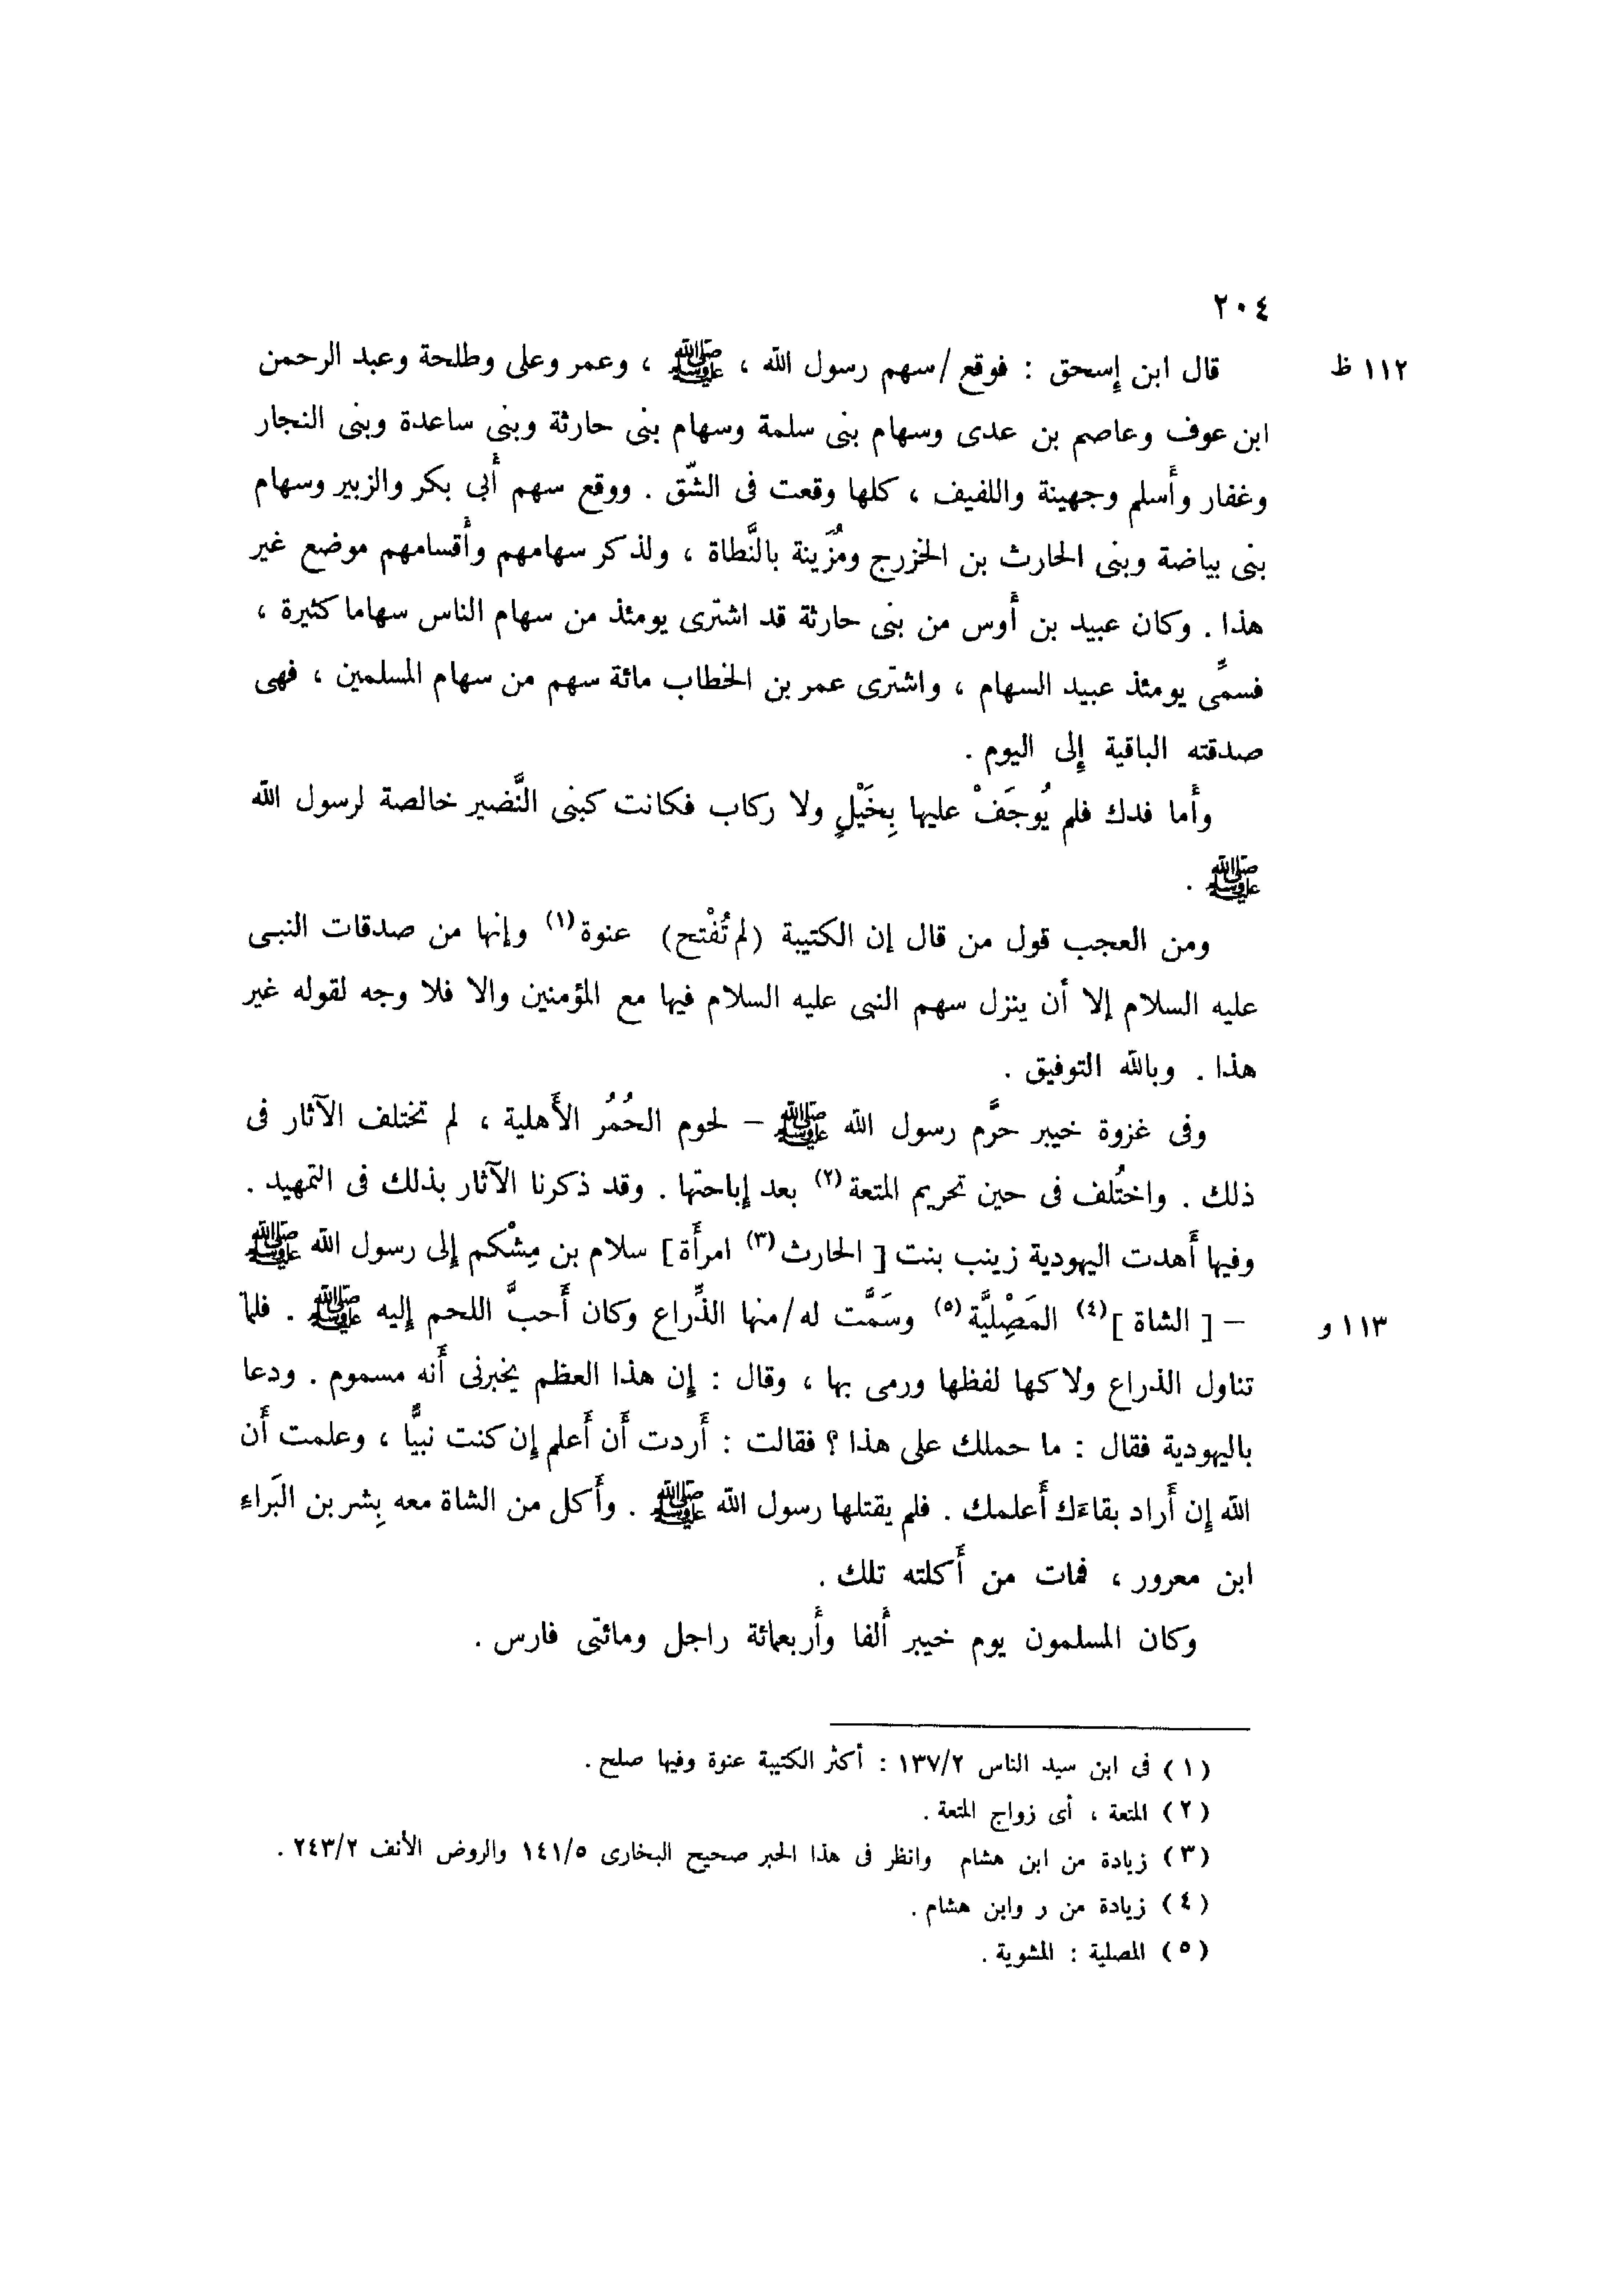 ٢٠٤
١١٢ ظ
قال ابن إسحق : فوقع /سهم رسول الله ، ﷺ ، وعمر وعلى وطلحة وعبد الرحمن
ابن عوف وعاصم بن عدى وسهام بنى سلمة وسهام بنى حارثة وبنى ساعدة وبنى النجار
وغفار وأسلم وجهينة واللفيف ، كلها وقعت فى الشّق . ووقع سهم أبى بكر والزبير وسهام
بنى بياضة وبنى الحارث بن الخزرج ومُزَينة بالنَّطاة ، ولذكر سهامهم وأقسامهم موضع غير
هذا . وكان عبيد بن أوس من بنى حارثة قد اشترى يومئذ من سهام الناس سهاما كثيرة ،
فسمِّى يومئذ عبيد السهام ، واشترى عمر بن الخطاب مائة سهم من سهام المسلمين ، فهى
صدقته الباقية إلى اليوم .
وأما فدك فلم يُوجَفْ عليها بِخَيْلٍ ولا ركاب فكانت كبنى النَّضير خالصة لرسول الله
ﷺ .
ومن العجب قول من قال إن الكتيبة (لم تُفْتح) عنوة(١) وإنها من صدقات النبى
عليه السلام إلا أن ينزل سهم النبى عليه السلام فيها مع المؤمنين والا فلا وجه لقوله غير
هذا . وبالله التوفيق .
وفى غزوة خيبر حرَّم رسول الله ﷺ – لحوم الحُمُر الأَهلية ، لم تختلف الآثار فى
ذلك . واختُلف فى حين تحريم المتعة(٢) بعد إباحتها . وقد ذكرنا الآثار بذلك فى التمهيد .
وفيها أَهدت اليهودية زينب بنت [ الحارث(٣) امرأَة ] سلام بن مِشْكم إلى رسول الله ﷺ
– [ الشاة ](٤) المَصْلِيَّة(٥) وسَمَّت له/منها الذِّراع وكان أَحبَّ اللحم إليه ﷺ . فلما
١١٣ و
تناول الذراع ولاكها لفظها ورمى بها ، وقال : إن هذا العظم يخبرنى أَنه مسموم . ودعا
باليهودية فقال : ما حملك على هذا ؟ فقالت : أَردت أَن أَعلم إن كنت نبيًّا ، وعلمت أَن
الله إن أَراد بقاءَك أَعلمك . فلم يقتلها رسول الله ﷺ . وأَكل من الشاة معه بِشر بن البَراء
ابن معرور ، فمات من أَكلته تلك .
وكان المسلمون يوم خيبر أَلفا وأَربعمائة راجل ومائتى فارس .
(١) فى ابن سيد الناس ١٣٧/٢ : أكثر الكتيبة عنوة وفيها صلح .
(٢) المتعة ، أى زواج المتعة .
(٣) زيادة من ابن هشام وانظر فى هذا الخبر صحيح البخارى ١٤١/٥ والروض الأنف ٢٤٣/٢ .
(٤) زيادة من ر وابن هشام .
(٥) المصلية : المشوية .